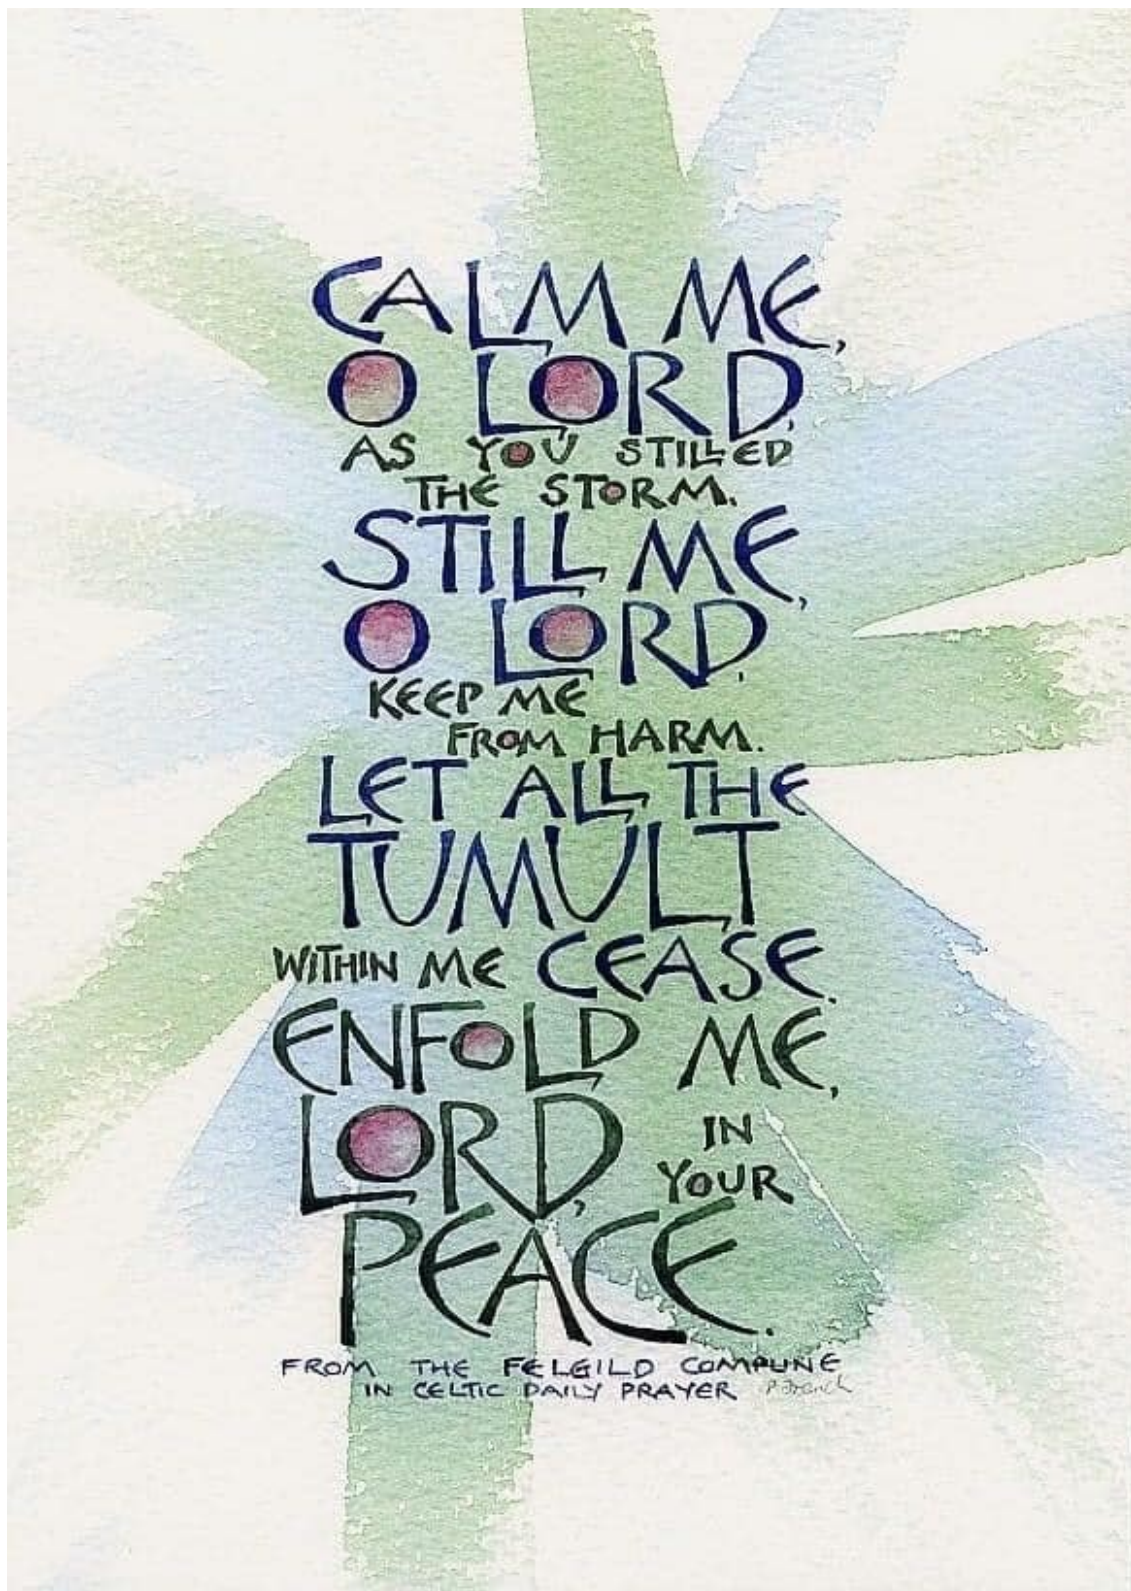 CALM ME,
O LORD,
AS YOU STILLED
THE STORM.
STILL ME,
O LORD,
KEEP ME
FROM HARM.
LET ALL THE
TUMULT
WITHIN ME CEASE.
ENFOLD ME,
LORD, IN
YOUR
PEACE.
FROM THE FELGILD COMPLINE
IN CELTIC DAILY PRAYER P French